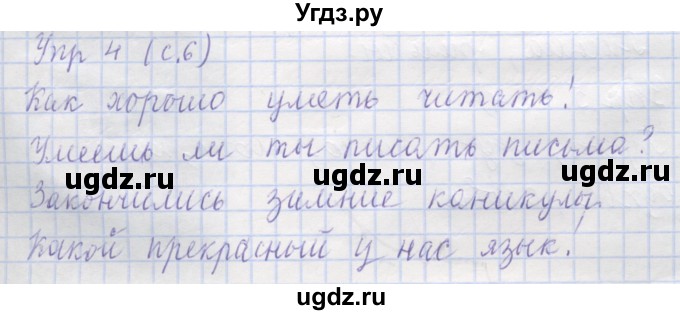 Угдз.ру
Упр 4 (с.6)
Как хорошо уметь читать!
Умеешь ли ты писать письма?
ugdz.ru ugdz.ru ugdz.ru
Закончились зимние каникулы.
ugdz.ru ugdz.ru
Какой прекрасный у нас язык!
ugdz.ru